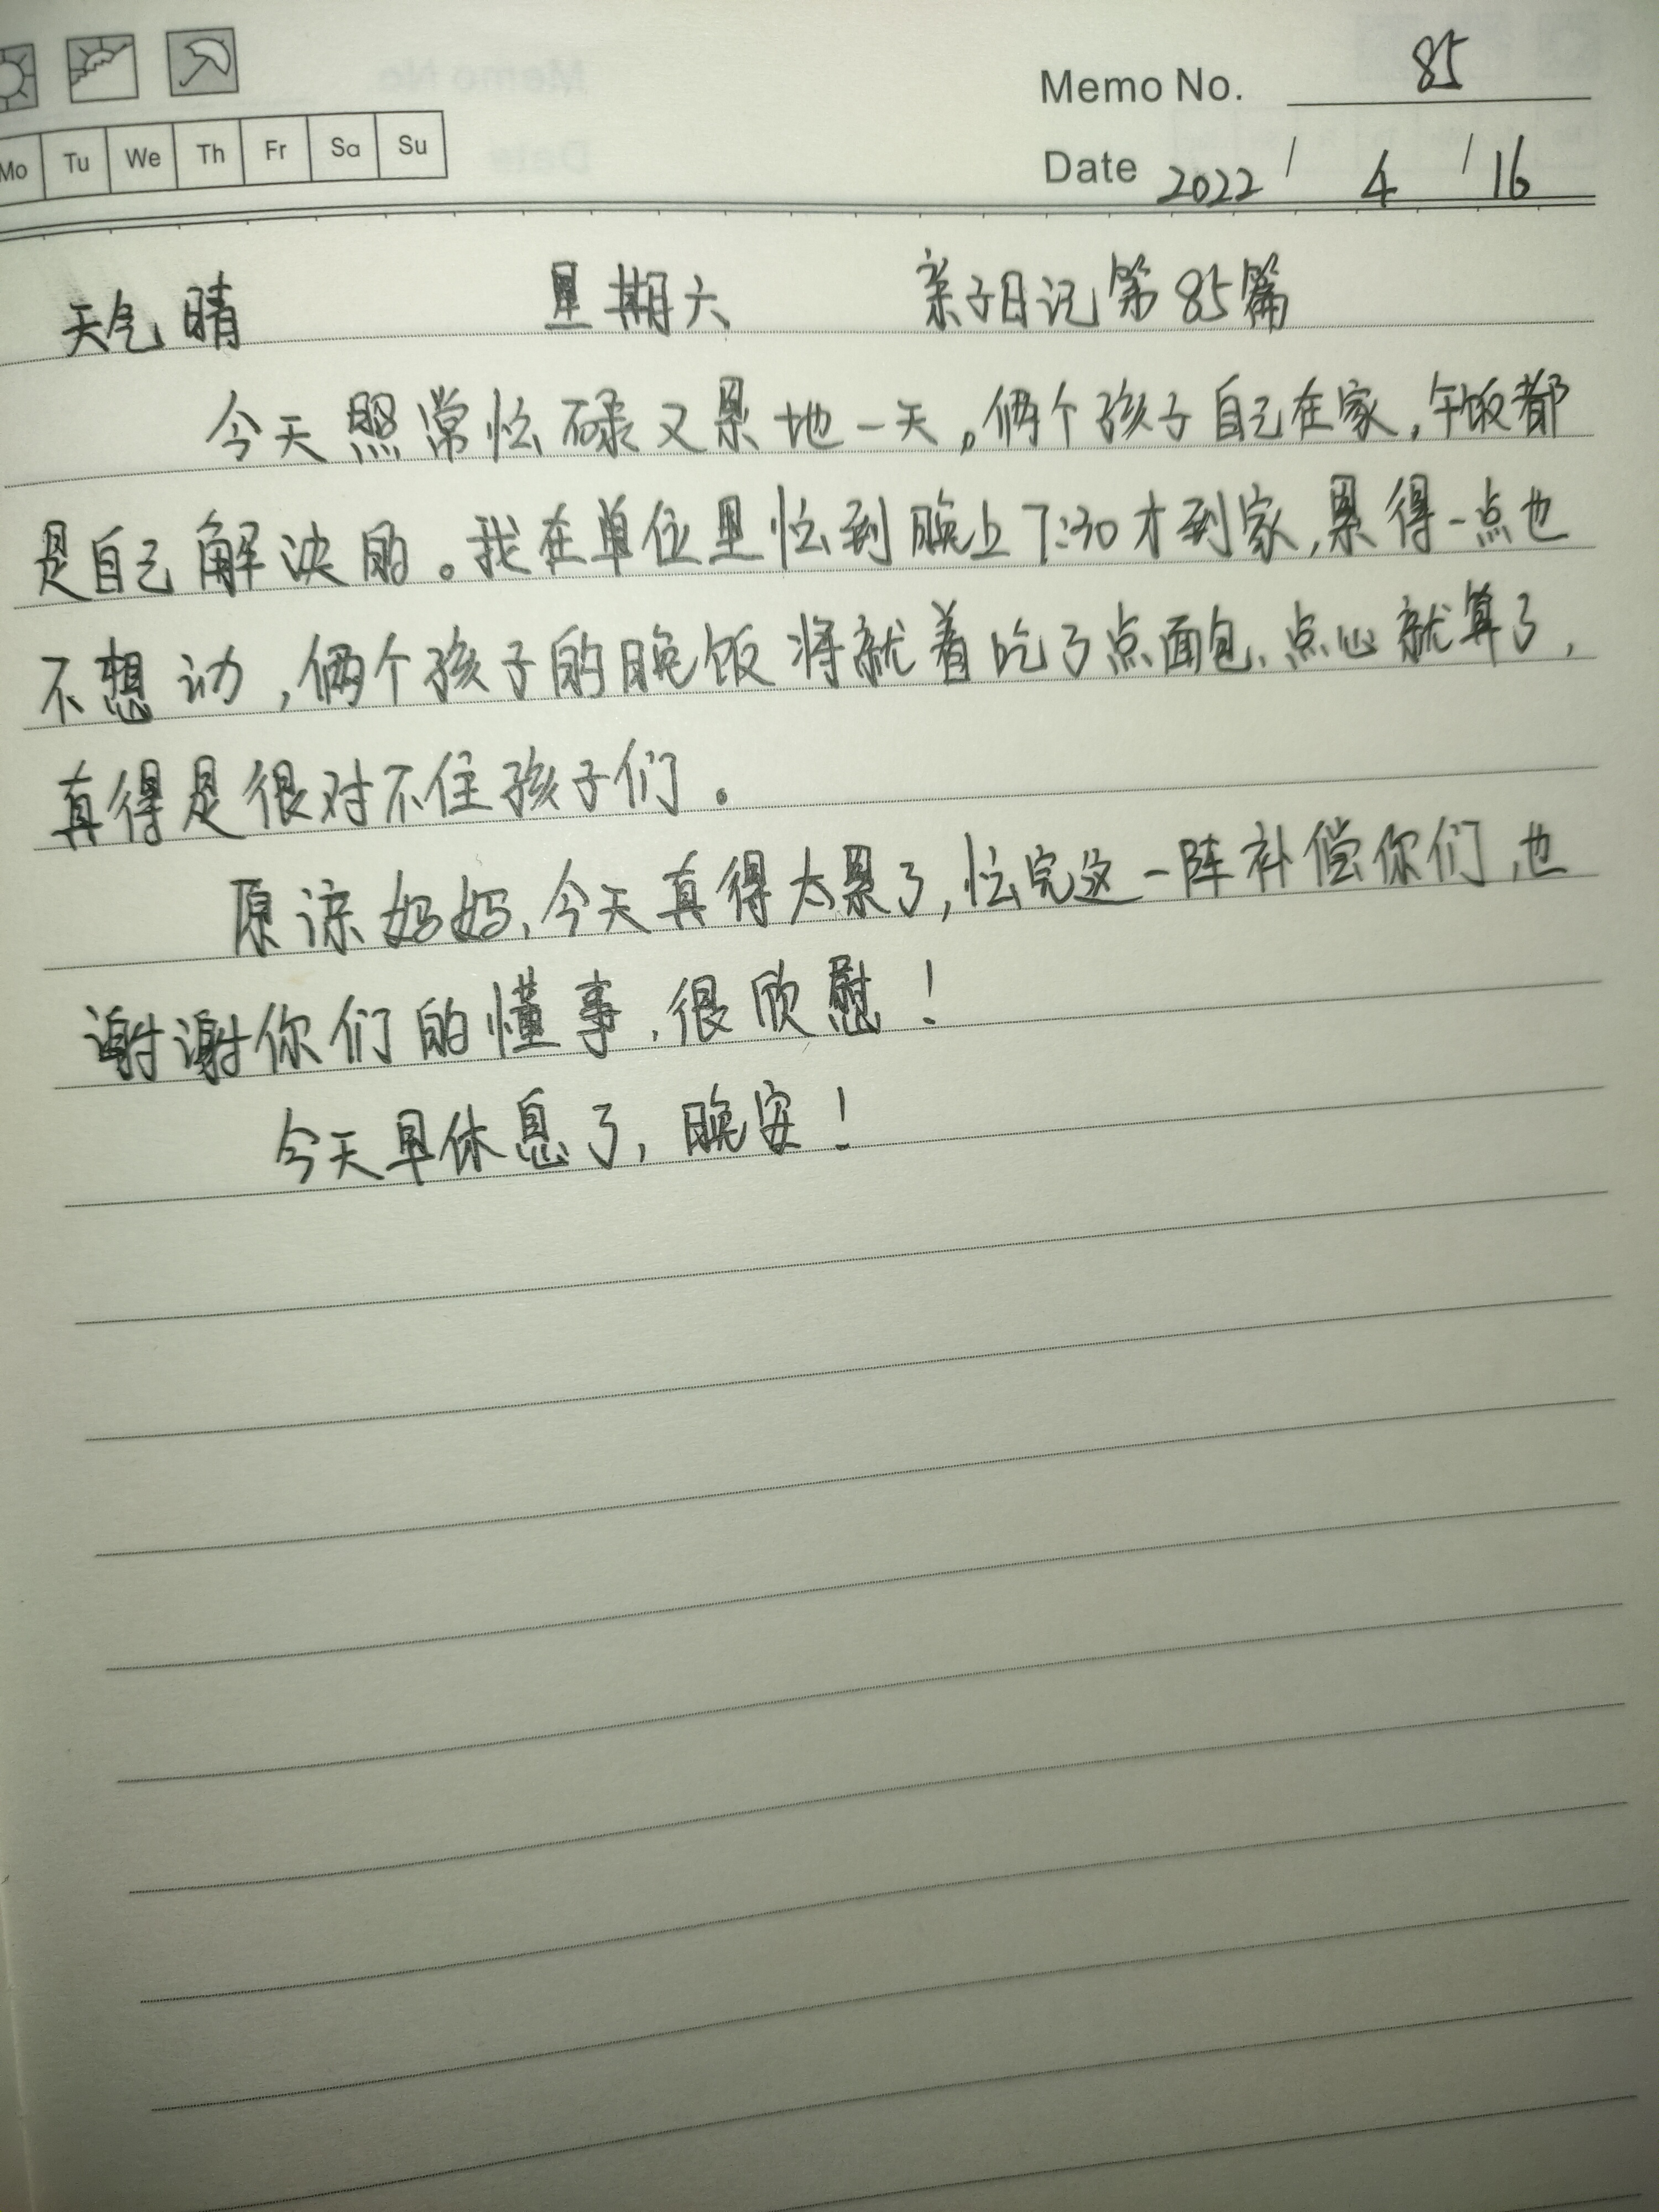 Memo No. 85
Mo Tu We Th Fr Sa Su
Date 2022 / 4 / 16
天气晴 星期六 亲子日记第85篇
今天照常忙碌又累地一天。俩个孩子自己在家,午饭都
是自己解决的。我在单位里忙到晚上7:30才到家,累得一点也
不想动,俩个孩子的晚饭将就着吃了点面包、点心就算了,
真得是很对不住孩子们。
原谅妈妈,今天真得太累了,忙完这一阵补偿你们,也
谢谢你们的懂事,很欣慰!
今天早休息了,晚安!